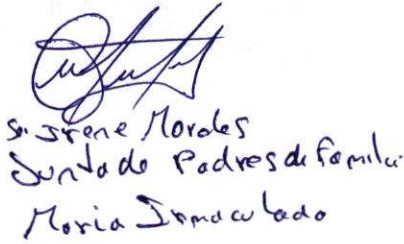 Sr. Irene Morales
Junta de Padres de Familia
Maria Inmaculada